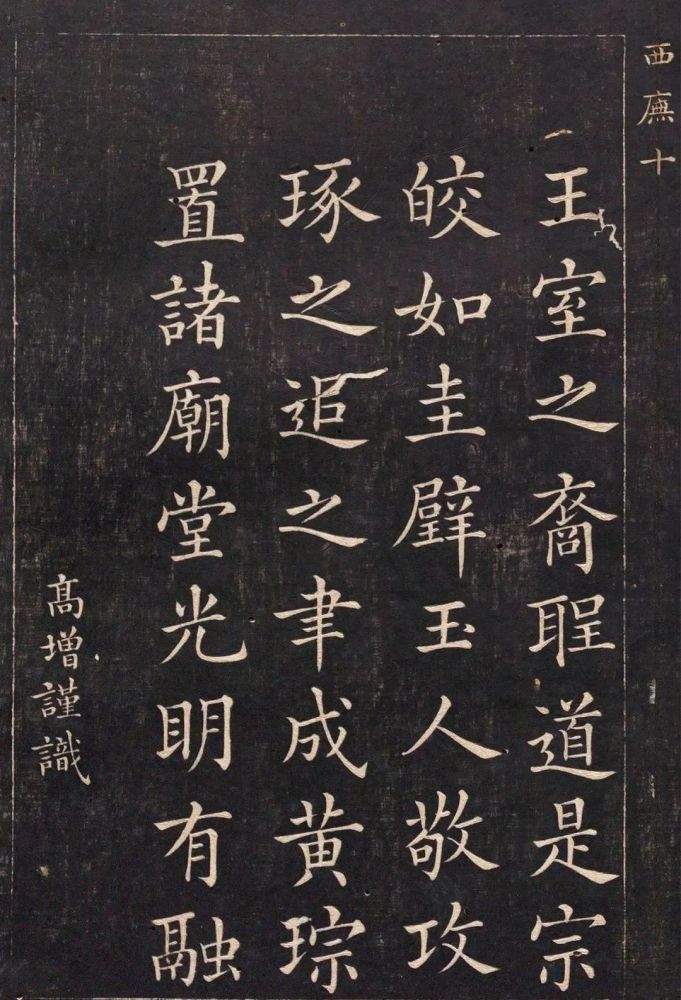 西廡十
王室之裔聖道是宗
皎如圭璧玉人敬攻
琢之追之聿成黄琮
置諸廟堂光眀有融
髙增謹識